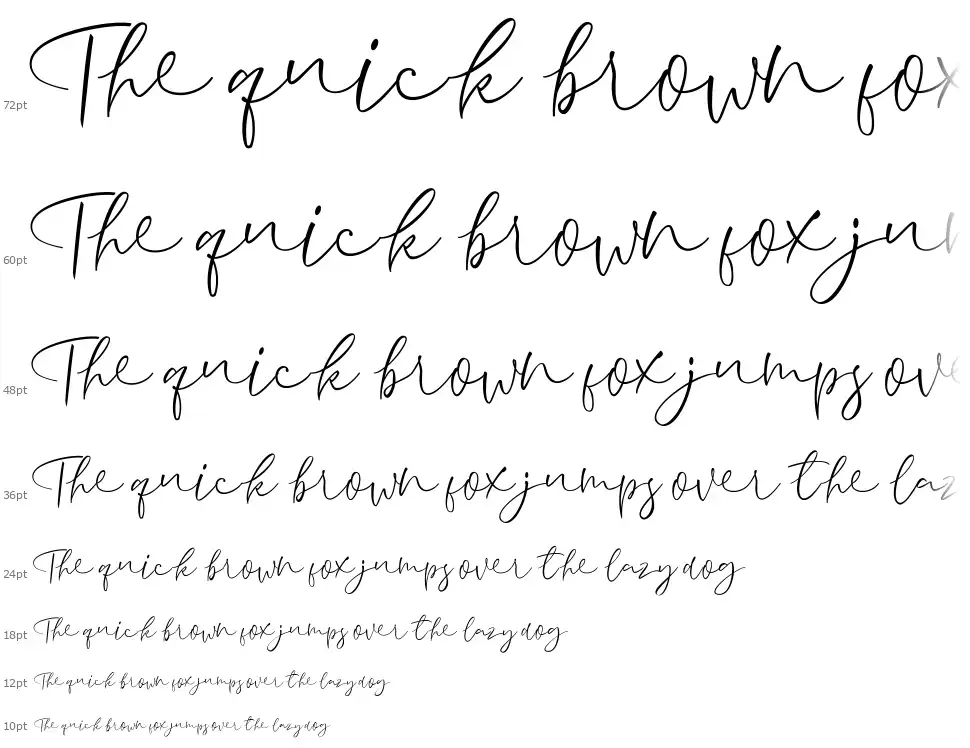 72pt The quick brown fox
60pt The quick brown fox jun
48pt The quick brown fox jumps ove
36pt The quick brown fox jumps over the laz
24pt The quick brown fox jumps over the lazy dog
18pt The quick brown fox jumps over the lazy dog
12pt The quick brown fox jumps over the lazy dog
10pt The quick brown fox jumps over the lazy dog